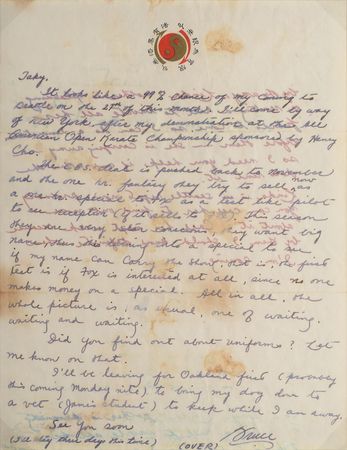 Taky,
It looks like a 99% chance of my coming to
Seattle on the 27th of this month. I'll come by way
of New York after my demonstration at the All
American Open Karate Championship sponsored by Henry
Cho.
The CBS deal is pushed back to November
and the one hr. fantasy they try to sell as now
a one hr. special to Fox as a test like pilot
to see reception if it sells to This season
they are very conscious, they want big
name thus the turning into a special to see
if my name can carry the show, that is, the first
test is if Fox is interested at all, since no one
makes money on a special. All in all, the
whole picture is, as usual, one of waiting,
waiting and waiting.
Did you find out about uniforms? Let
me know on that.
I'll be leaving for Oakland first (probably
this coming Monday nite) to bring my dog down to
a vet (James student) to keep while I am away.
See you soon
(I'll stay three days this time)
(OVER)
Bruce